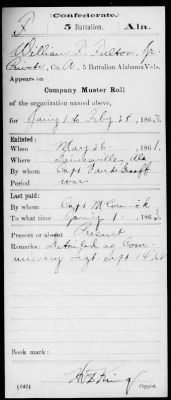 Confederate.
F 5 Battalion. Ala.
William F. Fulton, Jr.
Private, Co. A, 5 Battalion Alabama Vols.
Appears on
Company Muster Roll
of the organization named above,
for Jany 1 to Feby 28, 1863.
Enlisted:
When May 26, 1861.
Where Gainesville, Ala.
By whom Capt
Period war
Last paid:
By whom Capt
To what time Jany 1, 1863.
Present or absent Present
Remarks: Detailed as Com-
missary Sergt Sept 1862
Book mark:
(642) Copyist.